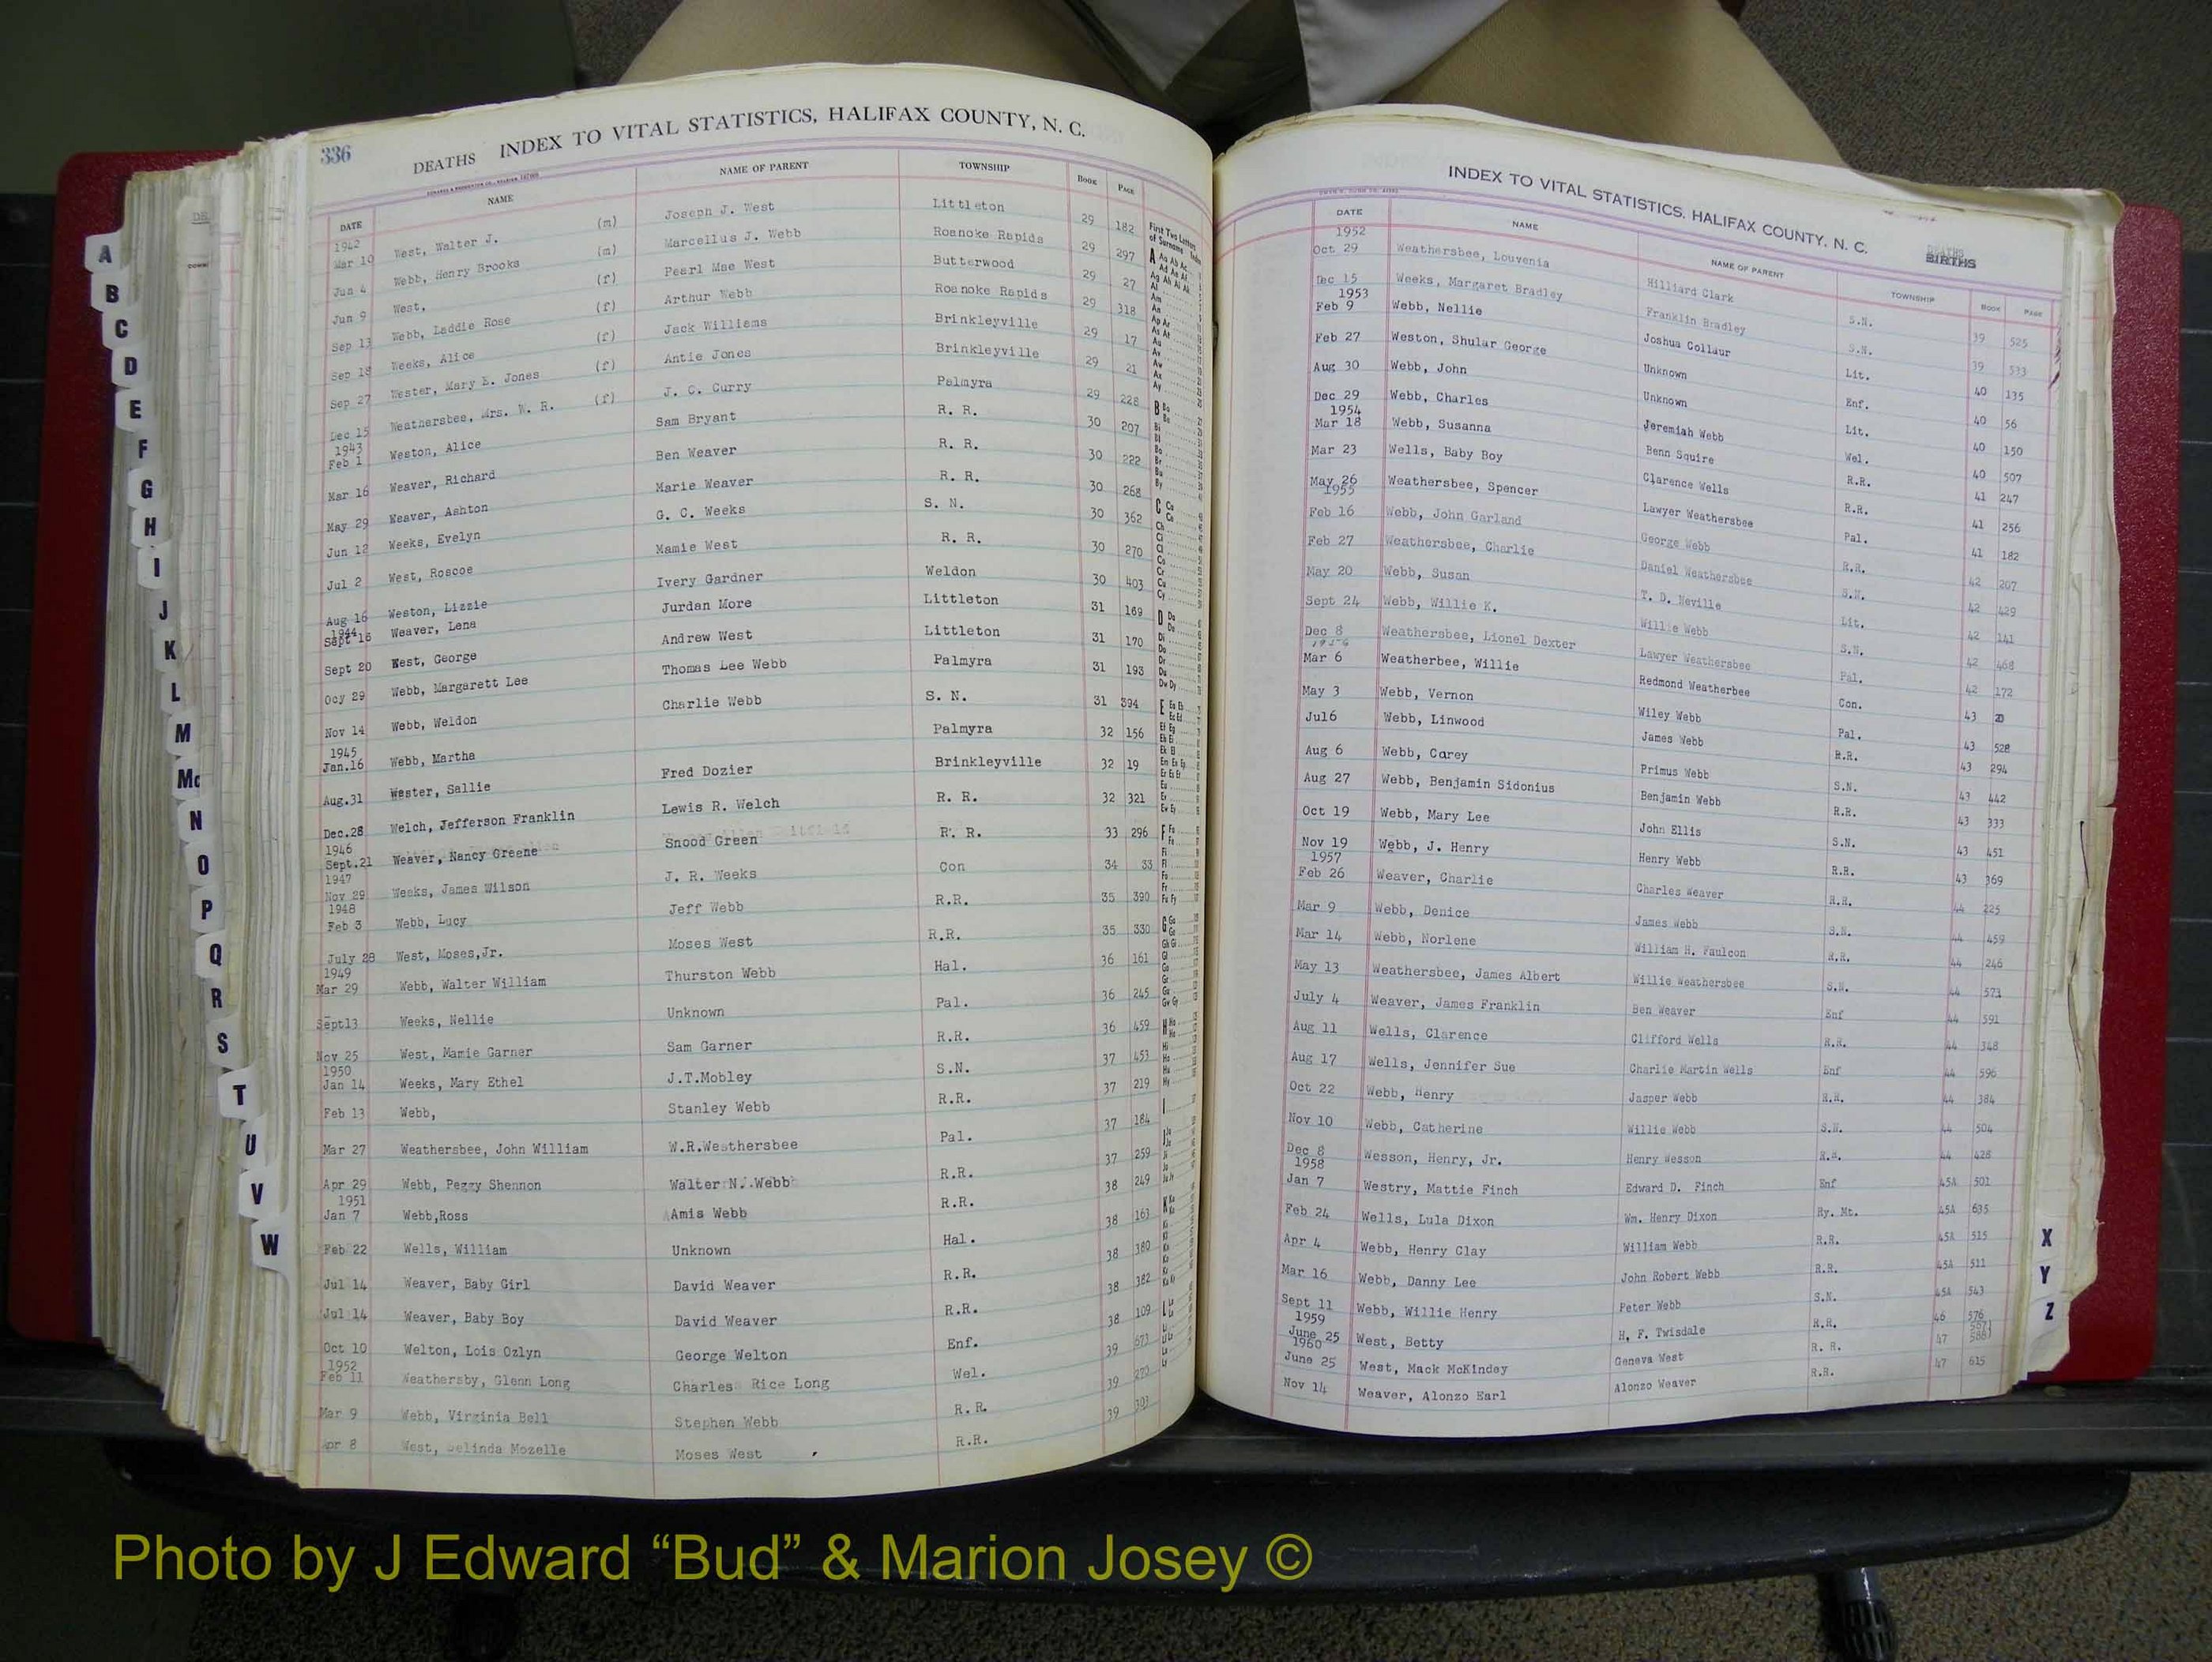 336
DEATHS INDEX TO VITAL STATISTICS, HALIFAX COUNTY, N. C.
DATE NAME NAME OF PARENT TOWNSHIP BOOK PAGE
1942
Mar 10 West, Walter J. (m) Joseph J. West Littleton 29 182
Jun 4 Webb, Henry Brooks (m) Marcellus J. Webb Roanoke Rapids 29 297
Jun 9 West, (f) Pearl Mae West Butterwood 29 27
Sep 13 Webb, Laddie Rose (f) Arthur Webb Roanoke Rapids 29 318
Sep 18 Weeks, Alice (f) Jack Williams Brinkleyville 29 17
Sep 27 Wester, Mary E. Jones (f) Antie Jones Brinkleyville 29 21
Dec 15 Weathersbee, Mrs. W. R. (f) J. C. Curry Palmyra 29 228
1943
Feb 1 Weston, Alice Sam Bryant R. R. 30 207
Mar 16 Weaver, Richard Ben Weaver R. R. 30 222
May 29 Weaver, Ashton Marie Weaver R. R. 30 268
Jun 12 Weeks, Evelyn G. C. Weeks S. N. 30 362
Jul 2 West, Roscoe Mamie West R. R. 30 270
Aug 16 Weston, Lizzie Ivery Gardner Weldon 30 403
1944
Sept 16 Weaver, Lena Jurdan More Littleton 31 169
Sept 20 West, George Andrew West Littleton 31 170
Ocy 29 Webb, Margarett Lee Thomas Lee Webb Palmyra 31 193
Nov 14 Webb, Weldon Charlie Webb S. N. 31 394
1945
Jan.16 Webb, Martha Palmyra 32 156
Aug.31 Wester, Sallie Fred Dozier Brinkleyville 32 19
Dec.28 Welch, Jefferson Franklin Lewis R. Welch R. R. 32 321
1946
Sept.21 Weaver, Nancy Greene Snood Green R. R. 33 296
1947
Nov 29 Weeks, James Wilson J. R. Weeks Con 34 33
1948
Feb 3 Webb, Lucy Jeff Webb R.R. 35 390
July 28 West, Moses,Jr. Moses West R.R. 35 330
1949
Mar 29 Webb, Walter William Thurston Webb Hal. 36 161
Sept13 Weeks, Nellie Unknown Pal. 36 245
Nov 25 West, Mamie Garner Sam Garner R.R. 36 459
1950
Jan 14 Weeks, Mary Ethel J.T.Mobley S.N. 37 453
Feb 13 Webb, Stanley Webb R.R. 37 219
Mar 27 Weathersbee, John William W.R.Weathersbee Pal. 37 184
Apr 29 Webb, Peggy Shennon Walter N. Webb R.R. 37 259
1951
Jan 7 Webb,Ross Amis Webb R.R. 38 249
Feb 22 Wells, William Unknown Hal. 38 163
Jul 14 Weaver, Baby Girl David Weaver R.R. 38 380
Jul 14 Weaver, Baby Boy David Weaver R.R. 38 382
Oct 10 Welton, Lois Ozlyn George Welton Enf. 38 109
1952
Feb 11 Weathersby, Glenn Long Charles Rice Long Wel. 39
Mar 9 Webb, Virginia Bell Stephen Webb R.R. 39
Apr 8 West, Belinda Mozelle Moses West R.R. 39
First Two Letters
of Surname
INDEX TO VITAL STATISTICS, HALIFAX COUNTY, N. C.
DEATHS
BIRTHS
DATE NAME NAME OF PARENT TOWNSHIP BOOK PAGE
1952
Oct 29 Weathersbee, Louvenia Hilliard Clark S.N. 39 525
Dec 15 Weeks, Margaret Bradley Franklin Bradley S.N. 39 533
1953
Feb 9 Webb, Nellie Joshua Collaur Lit. 40 135
Feb 27 Weston, Shular George Unknown Enf. 40 56
Aug 30 Webb, John Unknown Lit. 40 150
Dec 29 Webb, Charles Jeremiah Webb Wel. 40 507
1954
Mar 18 Webb, Susanna Benn Squire R.R. 41 247
Mar 23 Wells, Baby Boy Clarence Wells R.R. 41 256
May 26 Weathersbee, Spencer Lawyer Weathersbee Pal. 41 182
1955
Feb 16 Webb, John Garland George Webb R.R. 42 207
Feb 27 Weathersbee, Charlie Daniel Weathersbee S.N. 42 429
May 20 Webb, Susan T. D. Neville Lit. 42 141
Sept 24 Webb, Willie K. Willie Webb S.N. 42 468
Dec 8 Weathersbee, Lionel Dexter Lawyer Weathersbee Pal. 42 172
1956
Mar 6 Weatherbee, Willie Redmond Weatherbee Con. 43 20
May 3 Webb, Vernon Wiley Webb Pal. 43 528
Jul6 Webb, Linwood James Webb R.R. 43 294
Aug 6 Webb, Carey Primus Webb S.N. 43 442
Aug 27 Webb, Benjamin Sidonius Benjamin Webb R.R. 43 333
Oct 19 Webb, Mary Lee John Ellis S.N. 43 451
Nov 19 Webb, J. Henry Henry Webb R.R. 43 369
1957
Feb 26 Weaver, Charlie Charles Weaver R.R. 44 225
Mar 9 Webb, Denice James Webb S.N. 44 459
Mar 14 Webb, Norlene William H. Faulcon R.R. 44 246
May 13 Weathersbee, James Albert Willie Weathersbee S.N. 44 573
July 4 Weaver, James Franklin Ben Weaver Enf 44 591
Aug 11 Wells, Clarence Clifford Wells R.R. 44 348
Aug 17 Wells, Jennifer Sue Charlie Martin Wells Enf 44 596
Oct 22 Webb, Henry Jasper Webb R.R. 44 384
Nov 10 Webb, Catherine Willie Webb S.N. 44 504
Dec 8 Wesson, Henry, Jr. Henry Wesson R.R. 44 428
1958
Jan 7 Westry, Mattie Finch Edward D. Finch Enf 45A 501
Feb 24 Wells, Lula Dixon Wm. Henry Dixon Ry. Mt. 45A 635
Apr 4 Webb, Henry Clay William Webb R.R. 45A 515
Mar 16 Webb, Danny Lee John Robert Webb R.R. 45A 511
Sept 11 Webb, Willie Henry Peter Webb S.N. 45A 543
1959
June 25 West, Betty H. F. Twisdale R.R. 46 576
1960
June 25 West, Mack McKindey Geneva West R. R. 47
Nov 14 Weaver, Alonzo Earl Alonzo Weaver R.R. 47 615
A
B
C
D
E
F
G
H
I
J
K
L
M
Mc
N
O
P
Q
R
S
T
U
V
W
X
Y
Z
Photo by J Edward “Bud” & Marion Josey ©